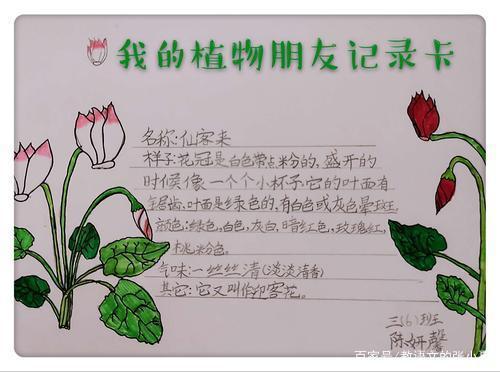 我的植物朋友记录卡
名称:仙客来
样子:花冠是白色带点粉的,盛开的
时候像一个个小杯子.它的叶面有
锯齿,叶面是绿色的,有白色或灰色晕斑,
颜色:绿色,白色,灰白,暗红色,玫瑰红,
桃粉色。
气味:一丝丝清(淡淡清香)
其它:它又叫作客花。
三(6)班
陈妍馨
百家号/教语文的张小